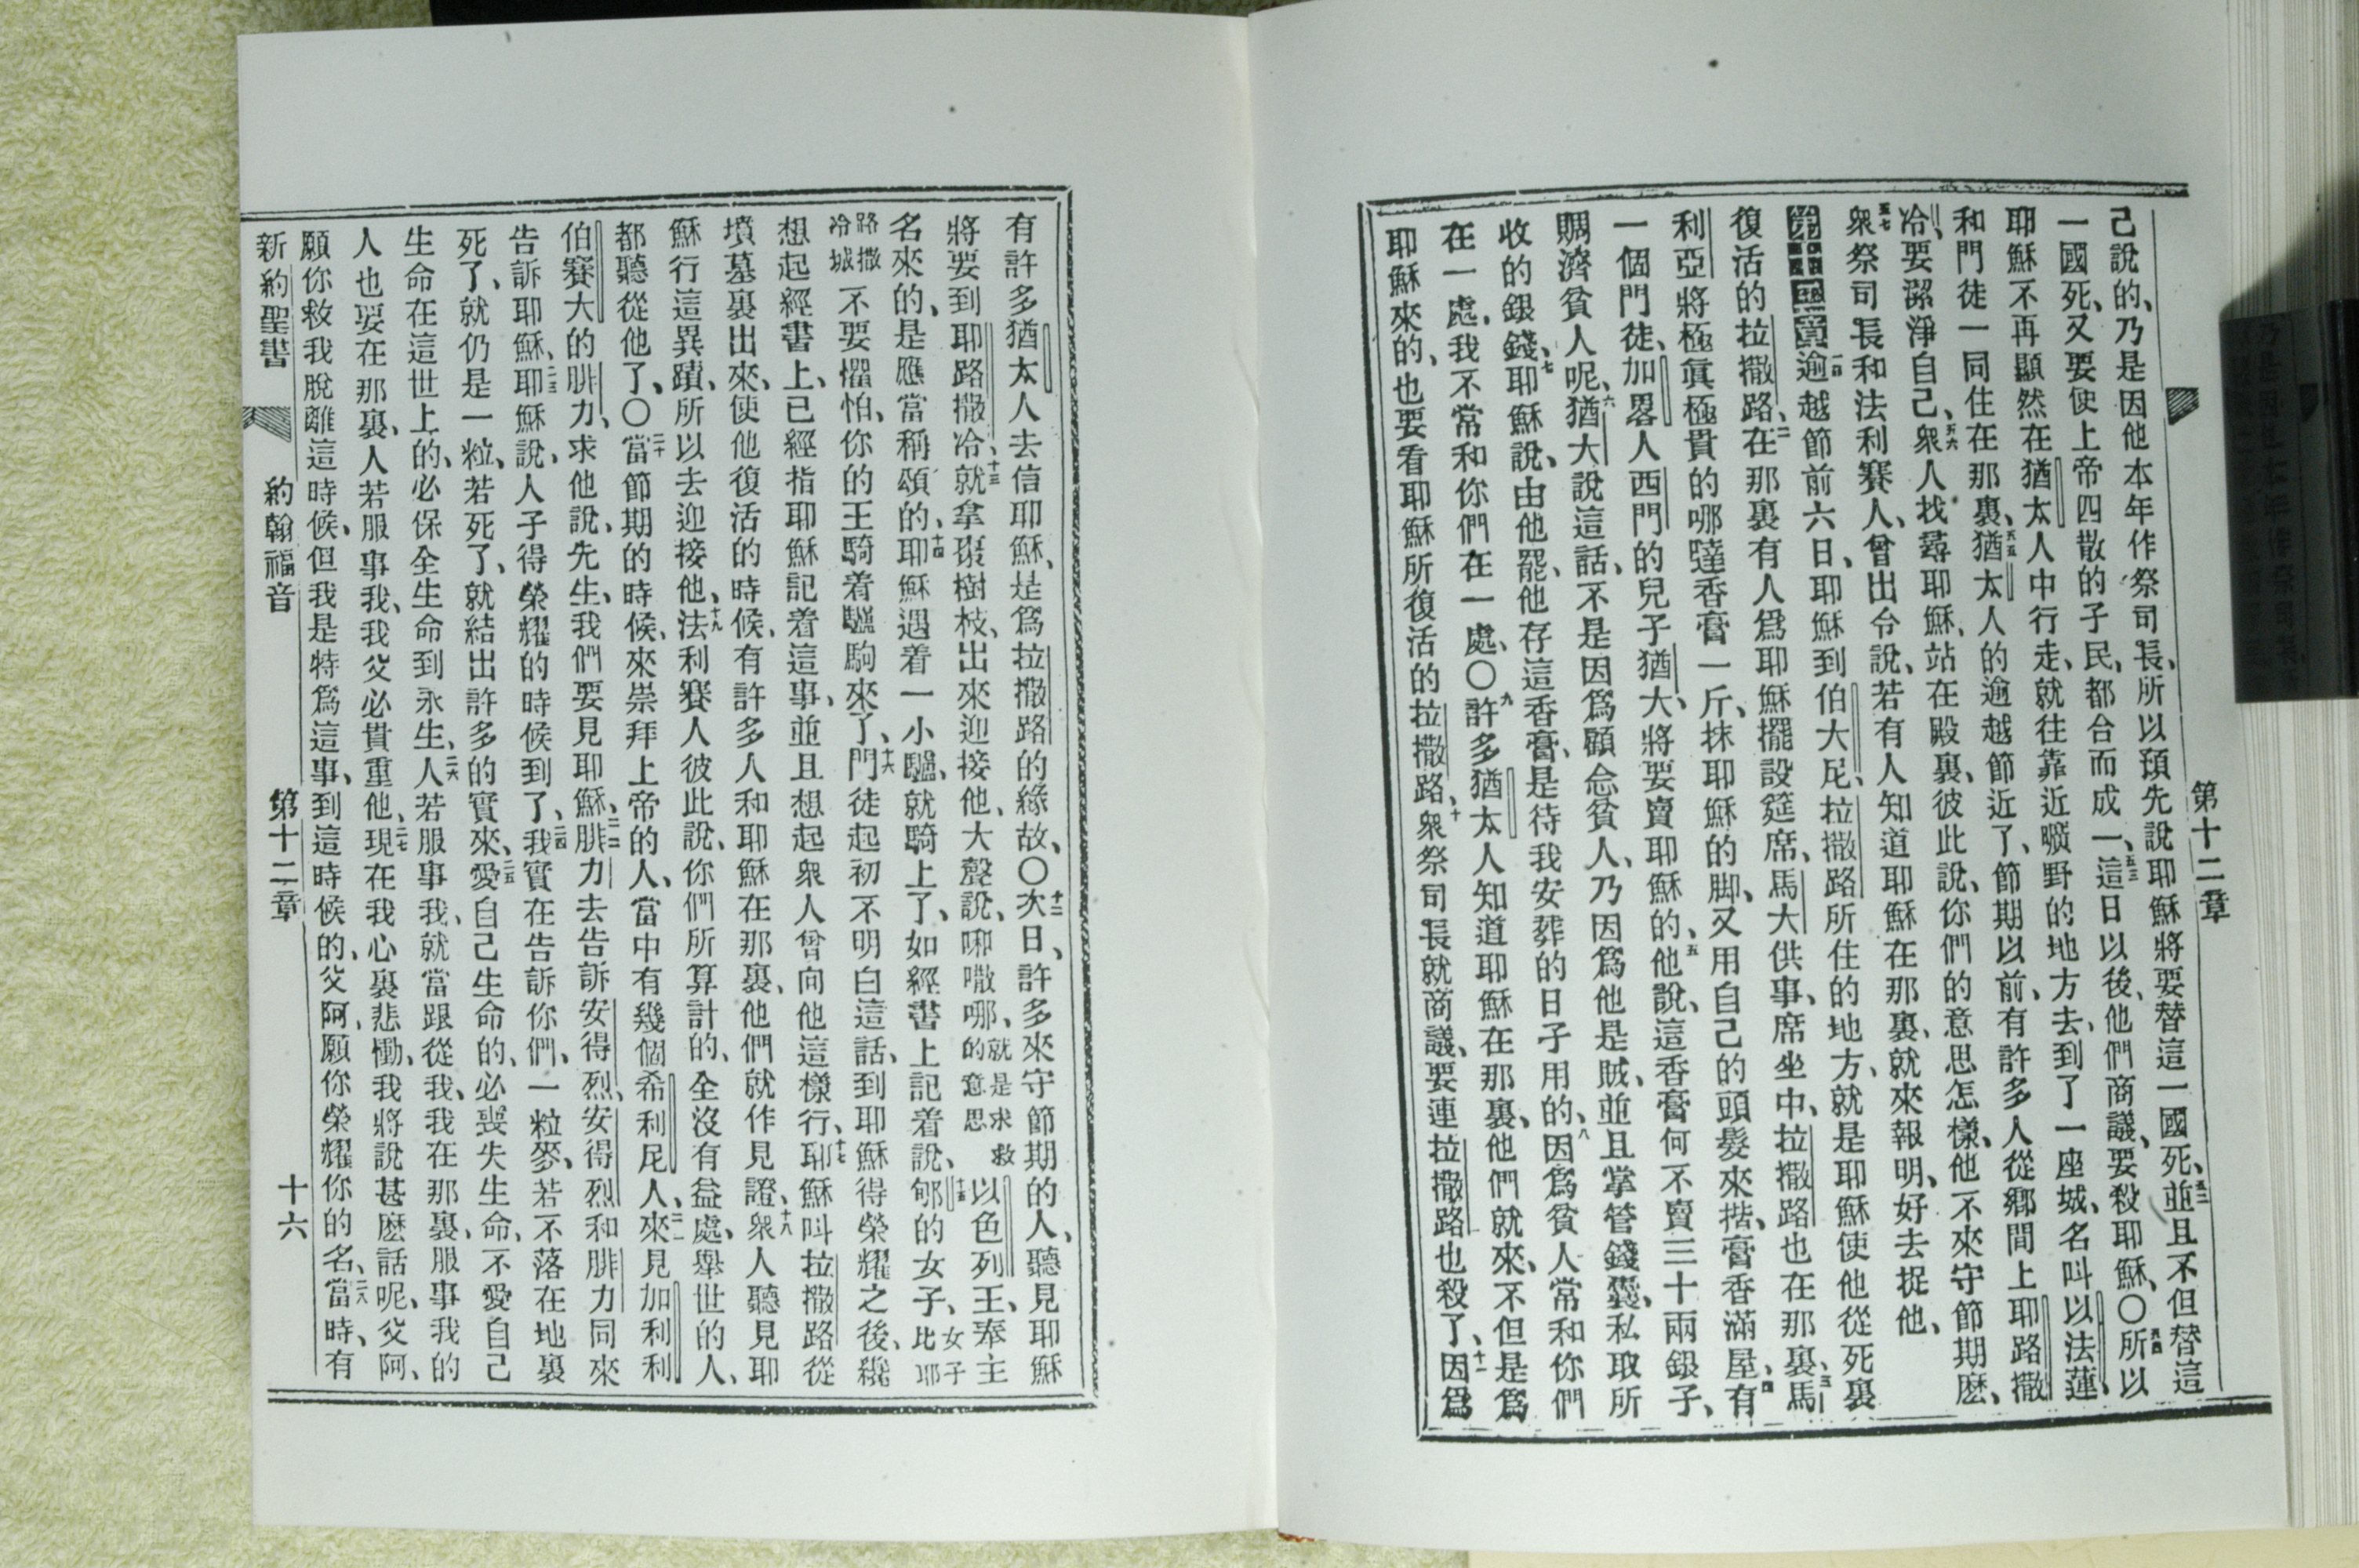 第十二章
己說的、乃是因他本年作祭司長、所以預先說耶穌將要替這一國死、五二並且不但替這
一國死、又要使上帝四散的子民、都合而成一、五三這日以後、他們商議、要殺耶穌、〇五四所以
耶穌不再顯然在猶太人中行走、就往靠近曠野的地方去、到了一座城、名叫以法蓮、
和門徒一同住在那裏、五五猶太人的逾越節近了、節期以前、有許多人從鄉間上耶路撒
冷、要潔淨自己、五六衆人找尋耶穌、站在殿裏、彼此說、你們的意思怎樣、他不來守節期麽、
五七衆祭司長和法利賽人、曾出令說、若有人知道耶穌在那裏、就來報明、好去捉他、
第十二章一逾越節前六日、耶穌到伯大尼、拉撒路所住的地方、就是耶穌使他從死裏
復活的拉撒路、二在那裏有人爲耶穌擺設筵席、馬大供事、席坐中、拉撒路也在那裏、三馬
利亞將極眞極貴的哪噠香膏一斤、抹耶穌的脚、又用自己的頭髮來揩、膏香滿屋、四有
一個門徒、加畧人西門的兒子猶大、將要賣耶穌的、五他說、這香膏何不賣三十兩銀子、
賙濟貧人呢、六猶大說這話、不是因爲顧念貧人、乃因爲他是賊、並且掌管錢囊、私取所
收的銀錢、七耶穌說、由他罷、他存這香膏、是待我安葬的日子用的、八因爲貧人常和你們
在一處、我不常和你們在一處、〇九許多猶太人知道耶穌在那裏、他們就來、不但是爲
耶穌來的、也要看耶穌所復活的拉撒路、十衆祭司長就商議、要連拉撒路也殺了、十一因爲
有許多猶太人去信耶穌、是爲拉撒路的緣故、〇十二次日、許多來守節期的人、聽見耶穌
將要到耶路撒冷、十三就拿棗樹枝、出來迎接他、大聲說、㖿㗮哪、就是求救的意思以色列王、奉主
名來的、是應當稱頌的、十四耶穌遇着一小驢、就騎上了、如經書上記着說、十五郇的女子、女子比耶
路撒冷城不要懼怕、你的王騎着驢駒來了、十六門徒起初不明白這話、到耶穌得榮耀之後、纔
想起經書上、已經指耶穌記着這事、並且想起衆人曾向他這樣行、十七耶穌叫拉撒路從
墳墓裏出來、使他復活的時候、有許多人和耶穌在那裏、他們就作見證、十八衆人聽見耶
穌行這異蹟、所以去迎接他、十九法利賽人彼此說、你們所算計的、全沒有益處、舉世的人、
都聽從他了、〇二十當節期的時候、來崇拜上帝的人、當中有幾個希利尼人、二一來見加利利
伯賽大的腓力、求他說、先生、我們要見耶穌、二二腓力去告訴安得烈、安得烈和腓力同來
告訴耶穌、二三耶穌說、人子得榮耀的時候到了、二四我實在告訴你們、一粒麥、若不落在地裏
死了、就仍是一粒、若死了、就結出許多的實來、二五愛自己生命的、必喪失生命、不愛自己
生命在這世上的、必保全生命到永生、二六人若服事我、就當跟從我、我在那裏、服事我的
人也要在那裏、人若服事我、我父必貴重他、二七現在我心裏悲慟、我將說甚麽話呢、父阿、
願你救我脫離這時候、但我是特爲這事、到這時候的、父阿、願你榮耀你的名、二八當時、有
新約聖書 約翰福音 第十二章 十六